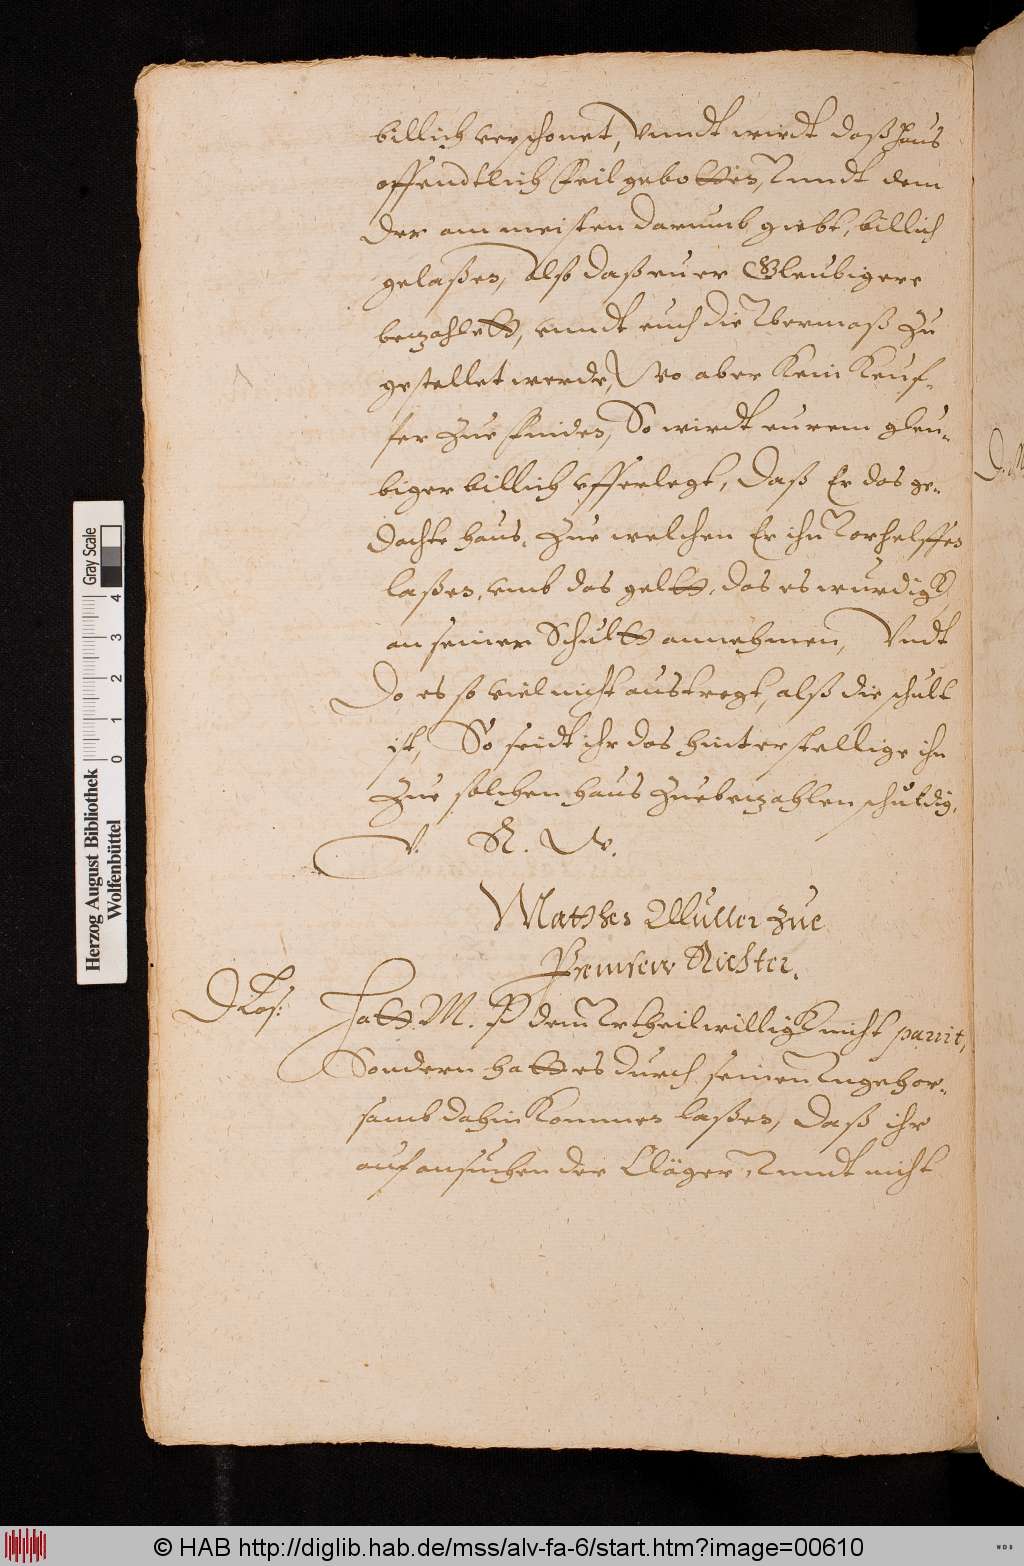 billich verschonet, Vnndt wirdt daß Haus
offendtlich feil gebotten, Vnndt dem
der am meisten darumb giebt, billich
gelaßen, Also daß euer Gleubigere
bezahlett, vnndt euch die Vbermaß zu
gestellet werde, Wo aber kein keuf-
fer zue finden, So wirdt eurem gleu-
biger billich vfferlegt, Daß Er das ge-
dachte haus, zue welchen Er ihm Vorhelffen
laßen, vmb das geltt, das es wurdigk,
an seiner Schultt annehmen, Vndt
Do es so viel nicht austregt, alß die schult
ist, So seidt ihr das hinterstellige ihm
zue solchen haus zuebezahlen schuldig.
V. R. W.
Matthes Muller zue
Premsew Richter.
D Cos: Hatt M. P dem Vrtheil willigk nicht parirt,
Sondern hatt es durch seinen Vngehor-
samb dahin kommen laßen, Daß ihr
auf ansuchen der Cläger Vnndt nicht
D. M
0 1 2 3 4
Gray Scale
Herzog August Bibliothek
Wolfenbüttel
© HAB http://diglib.hab.de/mss/alv-fa-6/start.htm?image=00610